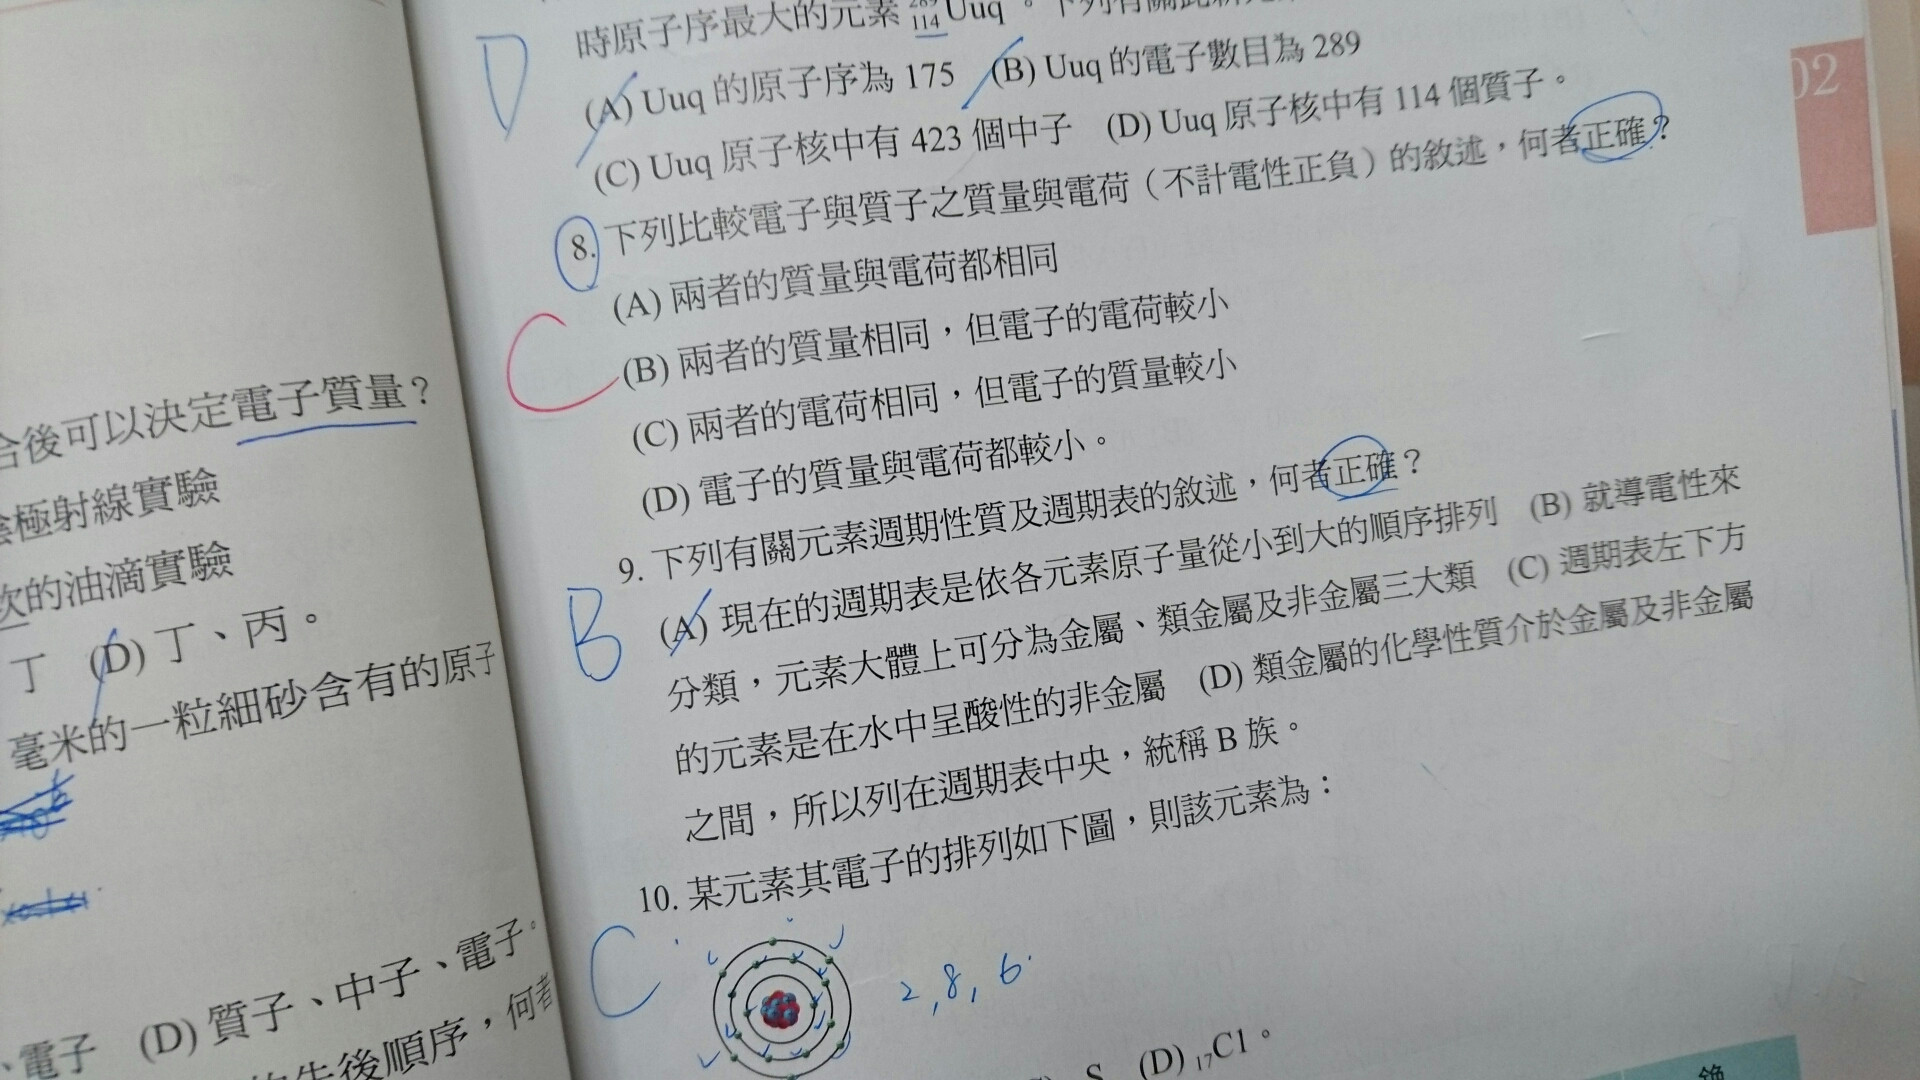 合後可以決定電子質量？
陰極射線實驗
次的油滴實驗
丁 (D) 丁、丙。
毫米的一粒細砂含有的原子
、電子 (D) 質子、中子、電子。
先後順序，何者
02
時原子序最大的元素 289 114 Uuq。下列有關此新
D
(A) Uuq 的原子序為 175 (B) Uuq 的電子數目為 289
(C) Uuq 原子核中有 423 個中子 (D) Uuq 原子核中有 114 個質子。
8. 下列比較電子與質子之質量與電荷（不計電性正負）的敘述，何者正確？
(A) 兩者的質量與電荷都相同
C
(B) 兩者的質量相同，但電子的電荷較小
(C) 兩者的電荷相同，但電子的質量較小
(D) 電子的質量與電荷都較小。
9. 下列有關元素週期性質及週期表的敘述，何者正確？
B
(A) 現在的週期表是依各元素原子量從小到大的順序排列 (B) 就導電性來
分類，元素大體上可分為金屬、類金屬及非金屬三大類 (C) 週期表左下方
的元素是在水中呈酸性的非金屬 (D) 類金屬的化學性質介於金屬及非金屬
之間，所以列在週期表中央，統稱 B 族。
10. 某元素其電子的排列如下圖，則該元素為：
C
2, 8, 6
S (D) 17Cl。